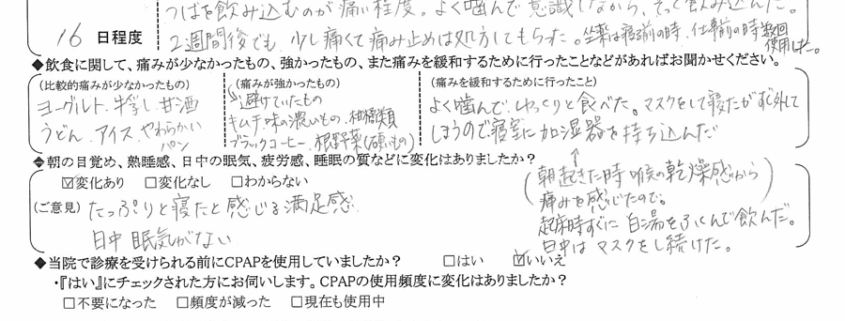 つばを飲み込むのが痛い程度。よく噛んで意識しながら、そっと飲み込んだ。
16 日程度
2週間後でも、少し痛くて痛み止めは処方してもらった。坐薬は寝る前の時、仕事前の時数回使用した。
◆飲食に関して、痛みが少なかったもの、強かったもの、また痛みを緩和するために行ったことなどがあればお聞かせください。
(比較的痛みが少なかったもの)
ヨーグルト、牛乳、甘酒
うどん、アイス、やわらかいパン
(痛みが強かったもの)
避けていたもの
キムチ、味の濃いもの、柑橘類
ブラックコーヒー、根野菜(硬いもの)
(痛みを緩和するために行ったこと)
よく噛んで、ゆっくりと食べた。マスクをして寝たがすぐ外して
しまうので寝室に加湿器を持ち込んだ
◆朝の目覚め、熟睡感、日中の眠気、疲労感、睡眠の質などに変化はありましたか?
☑変化あり □変化なし □わからない
(ご意見) たっぷりと寝たと感じる満足感
日中 眠気がない
(朝起きた時 喉の乾燥感から
痛みを感じたので。)
起床時すぐに 白湯をふくんで飲んだ。
日中は マスクをし続けた。
◆当院で診療を受けられる前にCPAPを使用していましたか? □はい ☑いいえ
・『はい』にチェックされた方にお伺いします。CPAPの使用頻度に変化はありましたか?
□不要になった □頻度が減った □現在も使用中